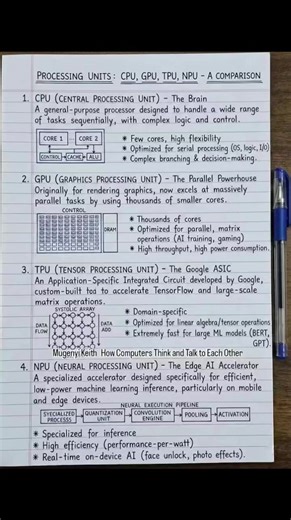 PROCESSING UNITS: CPU, GPU, TPU, NPU – A COMPARISON
1. CPU (CENTRAL PROCESSING UNIT) – The Brain
A general-purpose processor designed to handle a wide range
of tasks sequentially, with complex logic and control.
CORE 1 CORE 2
CONTROL CACHE ALU
* Few cores, high flexibility
* Optimized for serial processing (OS, logic, I/O)
* Complex branching & decision-making.
2. GPU (GRAPHICS PROCESSING UNIT) – The Parallel Powerhouse
Originally for rendering graphics, now excels at massively
parallel tasks by using thousands of smaller cores.
CONTROL
DRAM
* Thousands of cores
* Optimized for parallel, matrix
operations (AI training, gaming)
* High throughput, high power consumption.
3. TPU (TENSOR PROCESSING UNIT) – The Google ASIC
An Application-Specific Integrated Circuit developed by Google,
custom-built to accelerate TensorFlow and large-scale
matrix operations.
SYSTOLIC ARRAY
DATA
FLOW
DATA
ADD
* Domain-specific
* Optimized for linear algebra/tensor operations
* Extremely fast for large ML models (BERT,
GPT).
MugenyiKeith How Computers Think and Talk to Each Other
4. NPU (NEURAL PROCESSING UNIT) – The Edge AI Accelerator
A specialized accelerator designed specifically for efficient,
low-power machine learning inference, particularly on mobile
and edge devices.
NEURAL EXECUTION PIPELINE
SPECIALIZED
PROCESSS
QUANTIZATION
UNIT
CONVOLUTION
ENGINE
POOLING
ACTIVATION
* Specialized for inference
* High efficiency (performance-per-watt)
* Real-time on-device AI (face unlock, photo effects).